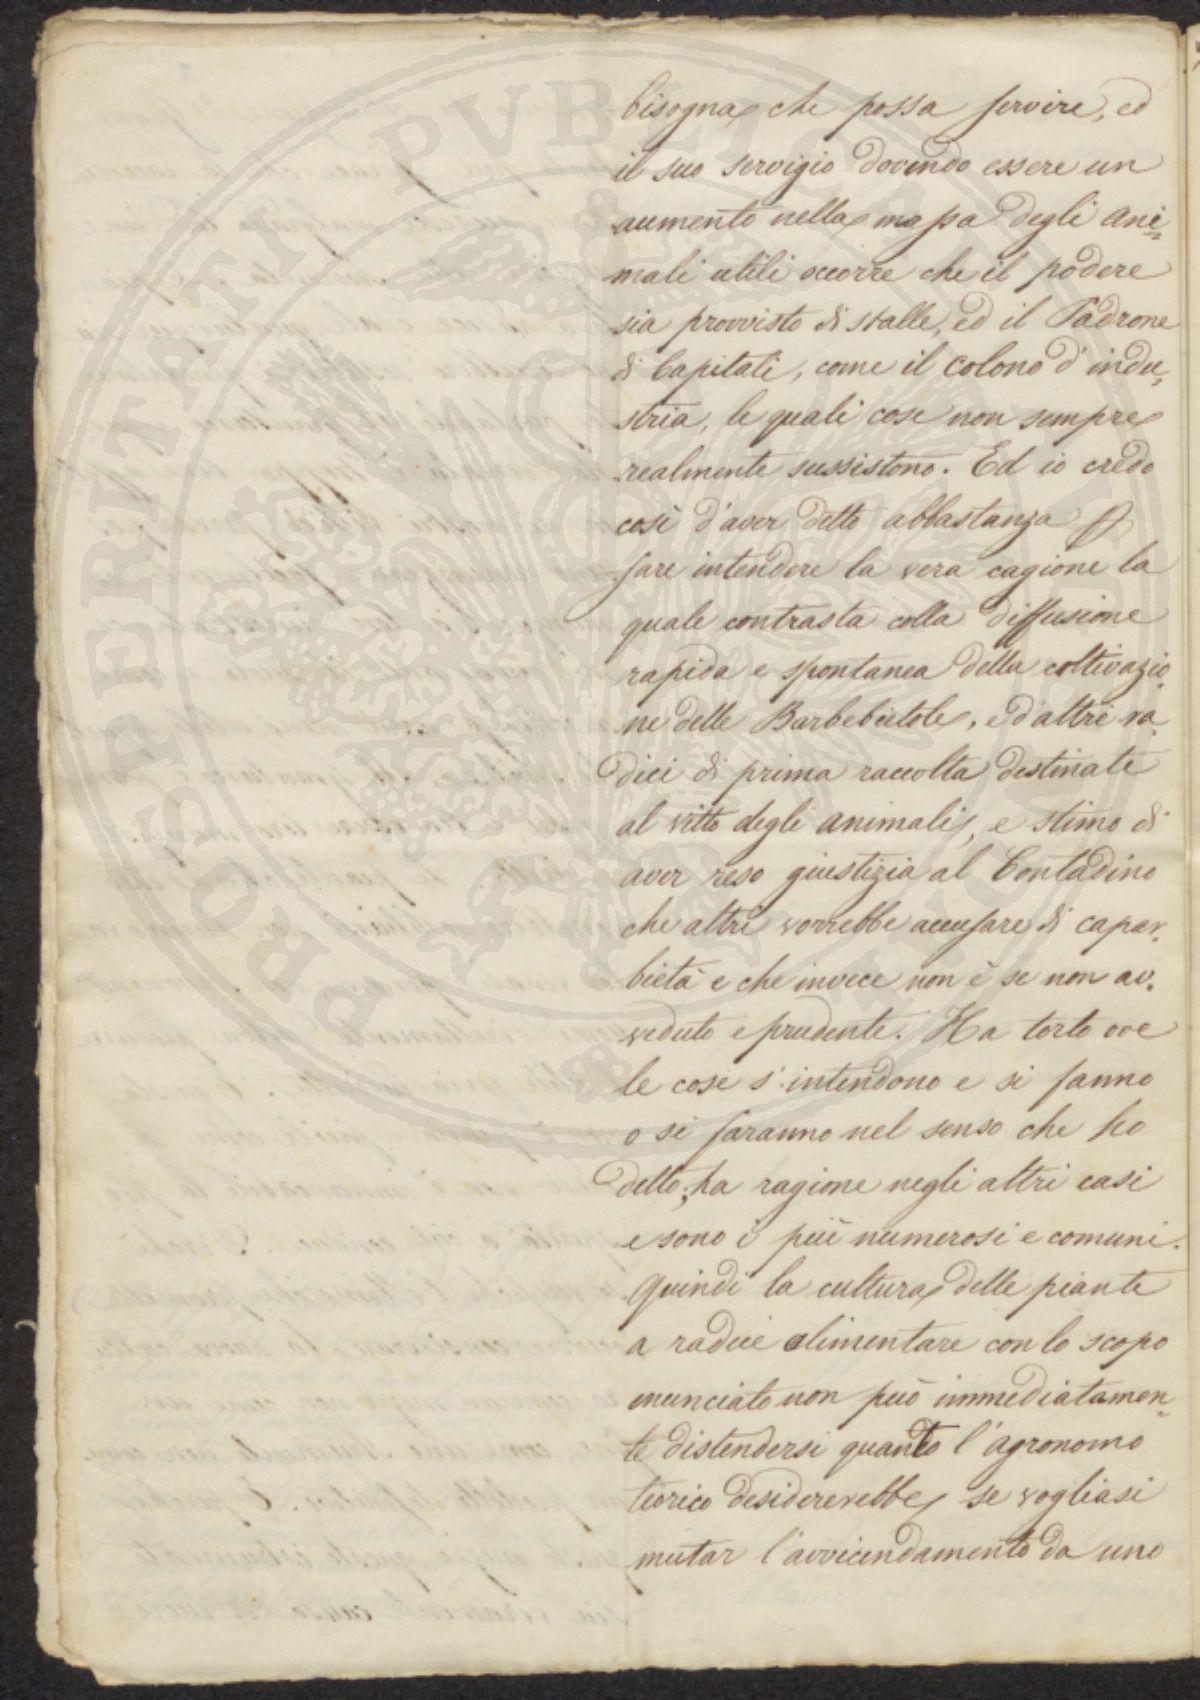 bisogna che possa servire, ed
il suo servigio dovendo essere un
aumento nella massa degli ani=
mali utili occorre che il podere
sia provvisto di stalle, ed il Padrone
di Capitali, come il colono d'indu=
stria, le quali cose non sempre
realmente sussistono. Ed io credo
così d'aver detto abbastanza p
fare intendere la vera cagione la
quale contrasta colla diffusione
rapida e spontanea della coltivazio=
ne delle Barbebietole, e d'altre ra=
dici di prima raccolta destinate
al vitto degli animali, e stimo di
aver reso giustizia al Contadino
che altri vorrebbe accusare di capar=
bietà e che invece non è se non av=
veduto e prudente. Ha torto ove
le cose s'intendono e si fanno
o si faranno nel senso che ho
detto; ha ragione negli altri casi
e sono i più numerosi e comuni.
Quindi la cultura delle piante
a radice alimentare con lo scopo
enunciato non può immediatamen=
te distendersi quanto l'agronomo
teorico desidererebbe, se vogliasi
mutar l'avvicendamento da uno
PROSPERITATI PVBLICAE